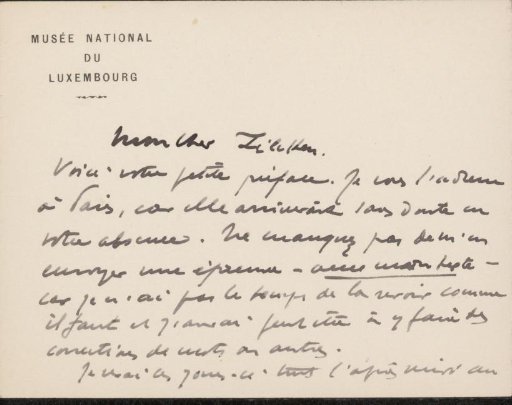 MUSÉE NATIONAL
DU
LUXEMBOURG
Mon cher Zilcken.
Voici votre petite préface. Je vous l'adresse
à Paris, car elle arriverait sans doute en
votre absence. Ne manquez pas de m'en
envoyer une épreuve - avec mon texte -
car je n'ai pas le temps de la revoir comme
il faut et j'aurai peut être à y faire des
corrections de mots ou autres.
Je serai ces jours-ci l'après midi au